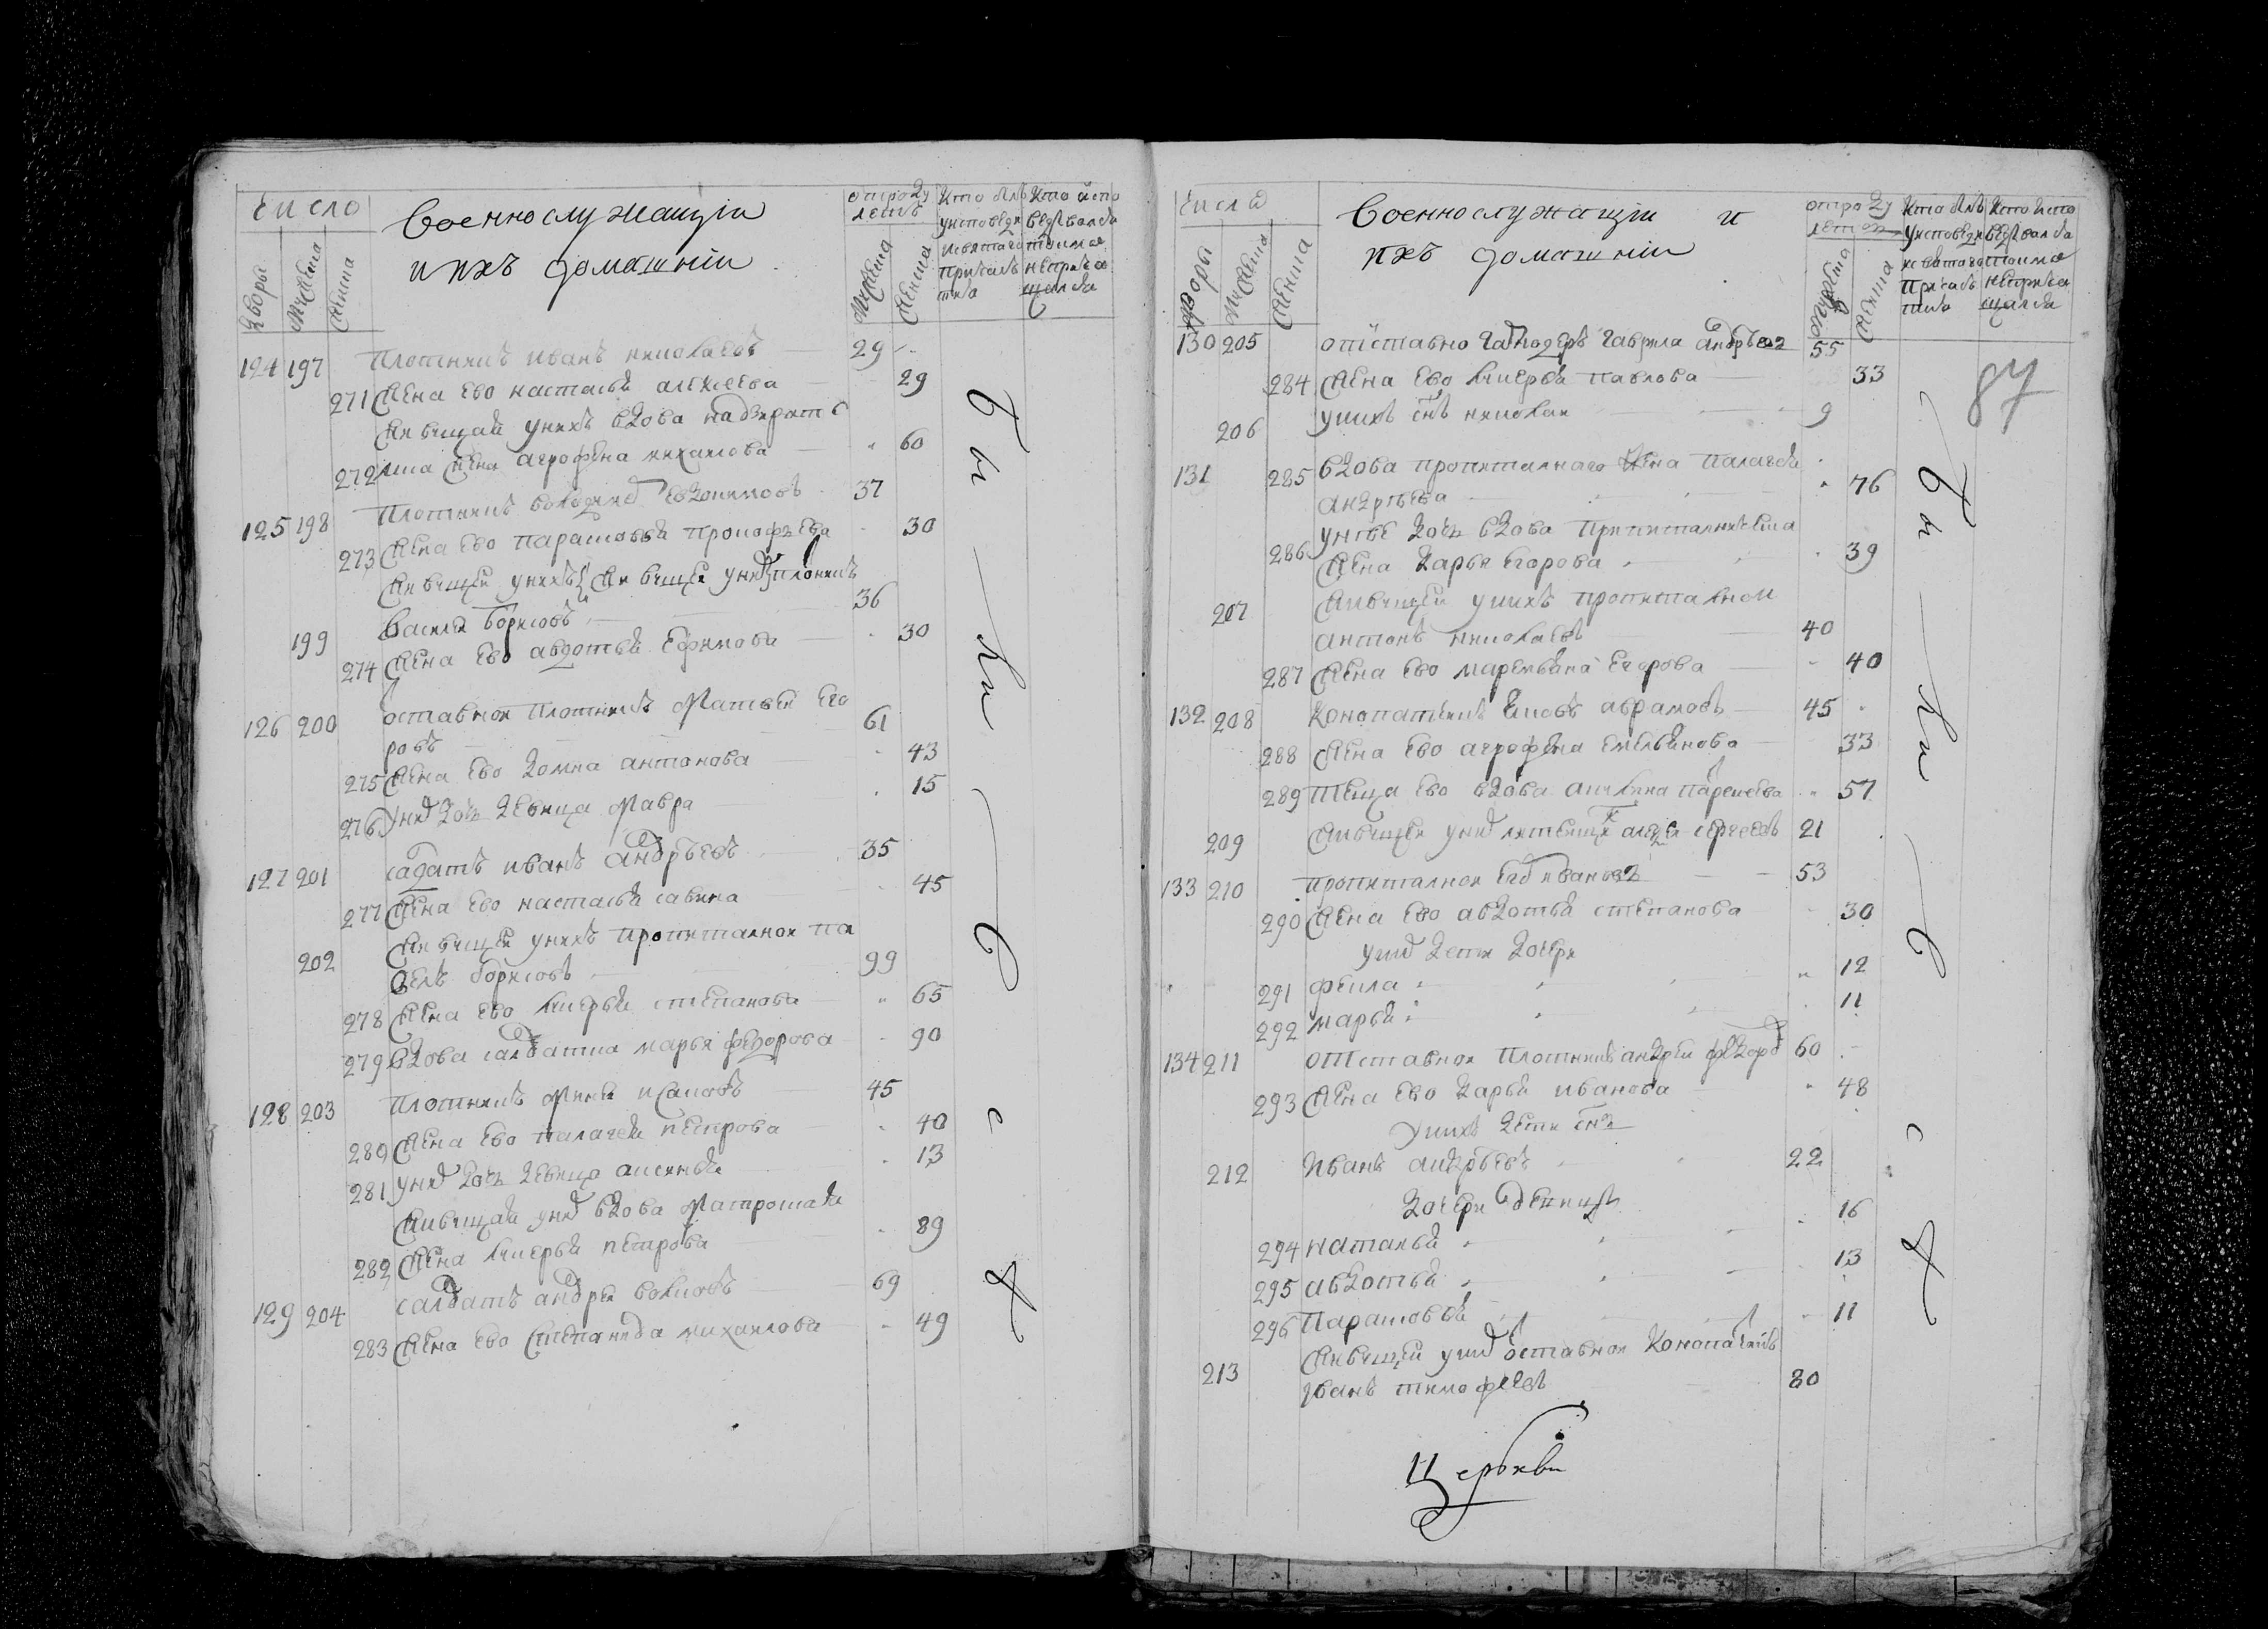 число
Военнослужащіи
и ихъ домашніи
отроду
летъ
Кто былъ
у исповеди
и святаго
причас
тия
Кто испо
ведвался
токмо
не прича
щался
дворы
мужеска
женска
мужеска
женска
124 197 плотникъ иванъ николаевъ 29
271 жена ево настасья алексеева 29
живущая у нихъ вдова
272 жена агрофена михаилова 60
125 198 плотникъ володимеръ 37
273 жена ево парасковья прокофьева 30
живущей у нихъ живущей у них плотникъ
199 василей борисовъ 36
274 жена ево авдотья ефимова 30
126 200 оставной плотникъ Матвей его
ровъ 61
275 жена ево домна антонова 43
276 у них дочь девица мавра 15
127 201 салдатъ иванъ андрѣевъ 35
277 жена ево настасья савина 45
живущей у нихъ пропиталной па
202 велъ борисовъ 99
278 жена ево лукерья степанова 65
279 вдова салдатка марья федорова 90
128 203 плотникъ исаковъ 45
280 жена ево палагея петрова 40
281 у них дочь девица аксинья 13
живущая у них вдова матроская
282 жена лукерья петрова 89
129 204 салдатъ андрей волковъ 69
283 жена ево степанида михаилова 49
бы ли в с я
числа
Военнослужащіи и
ихъ домашніи
отроду
летъ
Кто былъ
у исповеди
и святаго
причас
тия
Кто испо
ведвался
токмо
не прича
щался
дворы
мужеска
женска
мужеска
женска
87
130 205 гаврила андрѣевъ 55
284 жена ево лукерья павлова 33
206 у нихъ снъ николай 9
131 285 вдова пропиталнаго жена палагея
андрѣева 76
у нее дочь вдова
286 жена дарья егорова 39
207 живущей у нихъ пропиталной
антонъ николаевъ 40
287 жена ево маремьяна егорова 40
132 208 конопатчикъ яковъ аврамовъ 45
288 жена ево агрофена емельянова 33
289 теща ево вдова акилина 57
209 живущей у них сергеевъ 21
133 210 пропиталной иванов 53
290 жена ево авдотья степанова 30
у них дети дочери
291 фекла 12
292 марья 11
134 211 отставной плотникъ андрей федоров 60
293 жена ево дарья иванова 48
у нихъ дети снъ
212 иванъ андрѣевъ 22
дочери девицы
294 наталья 16
295 авдотья 13
296 парасковья 11
живущей у них оставной конопатчикъ
213 иванъ тимофеевъ 80
бы ли в с я
Церькви